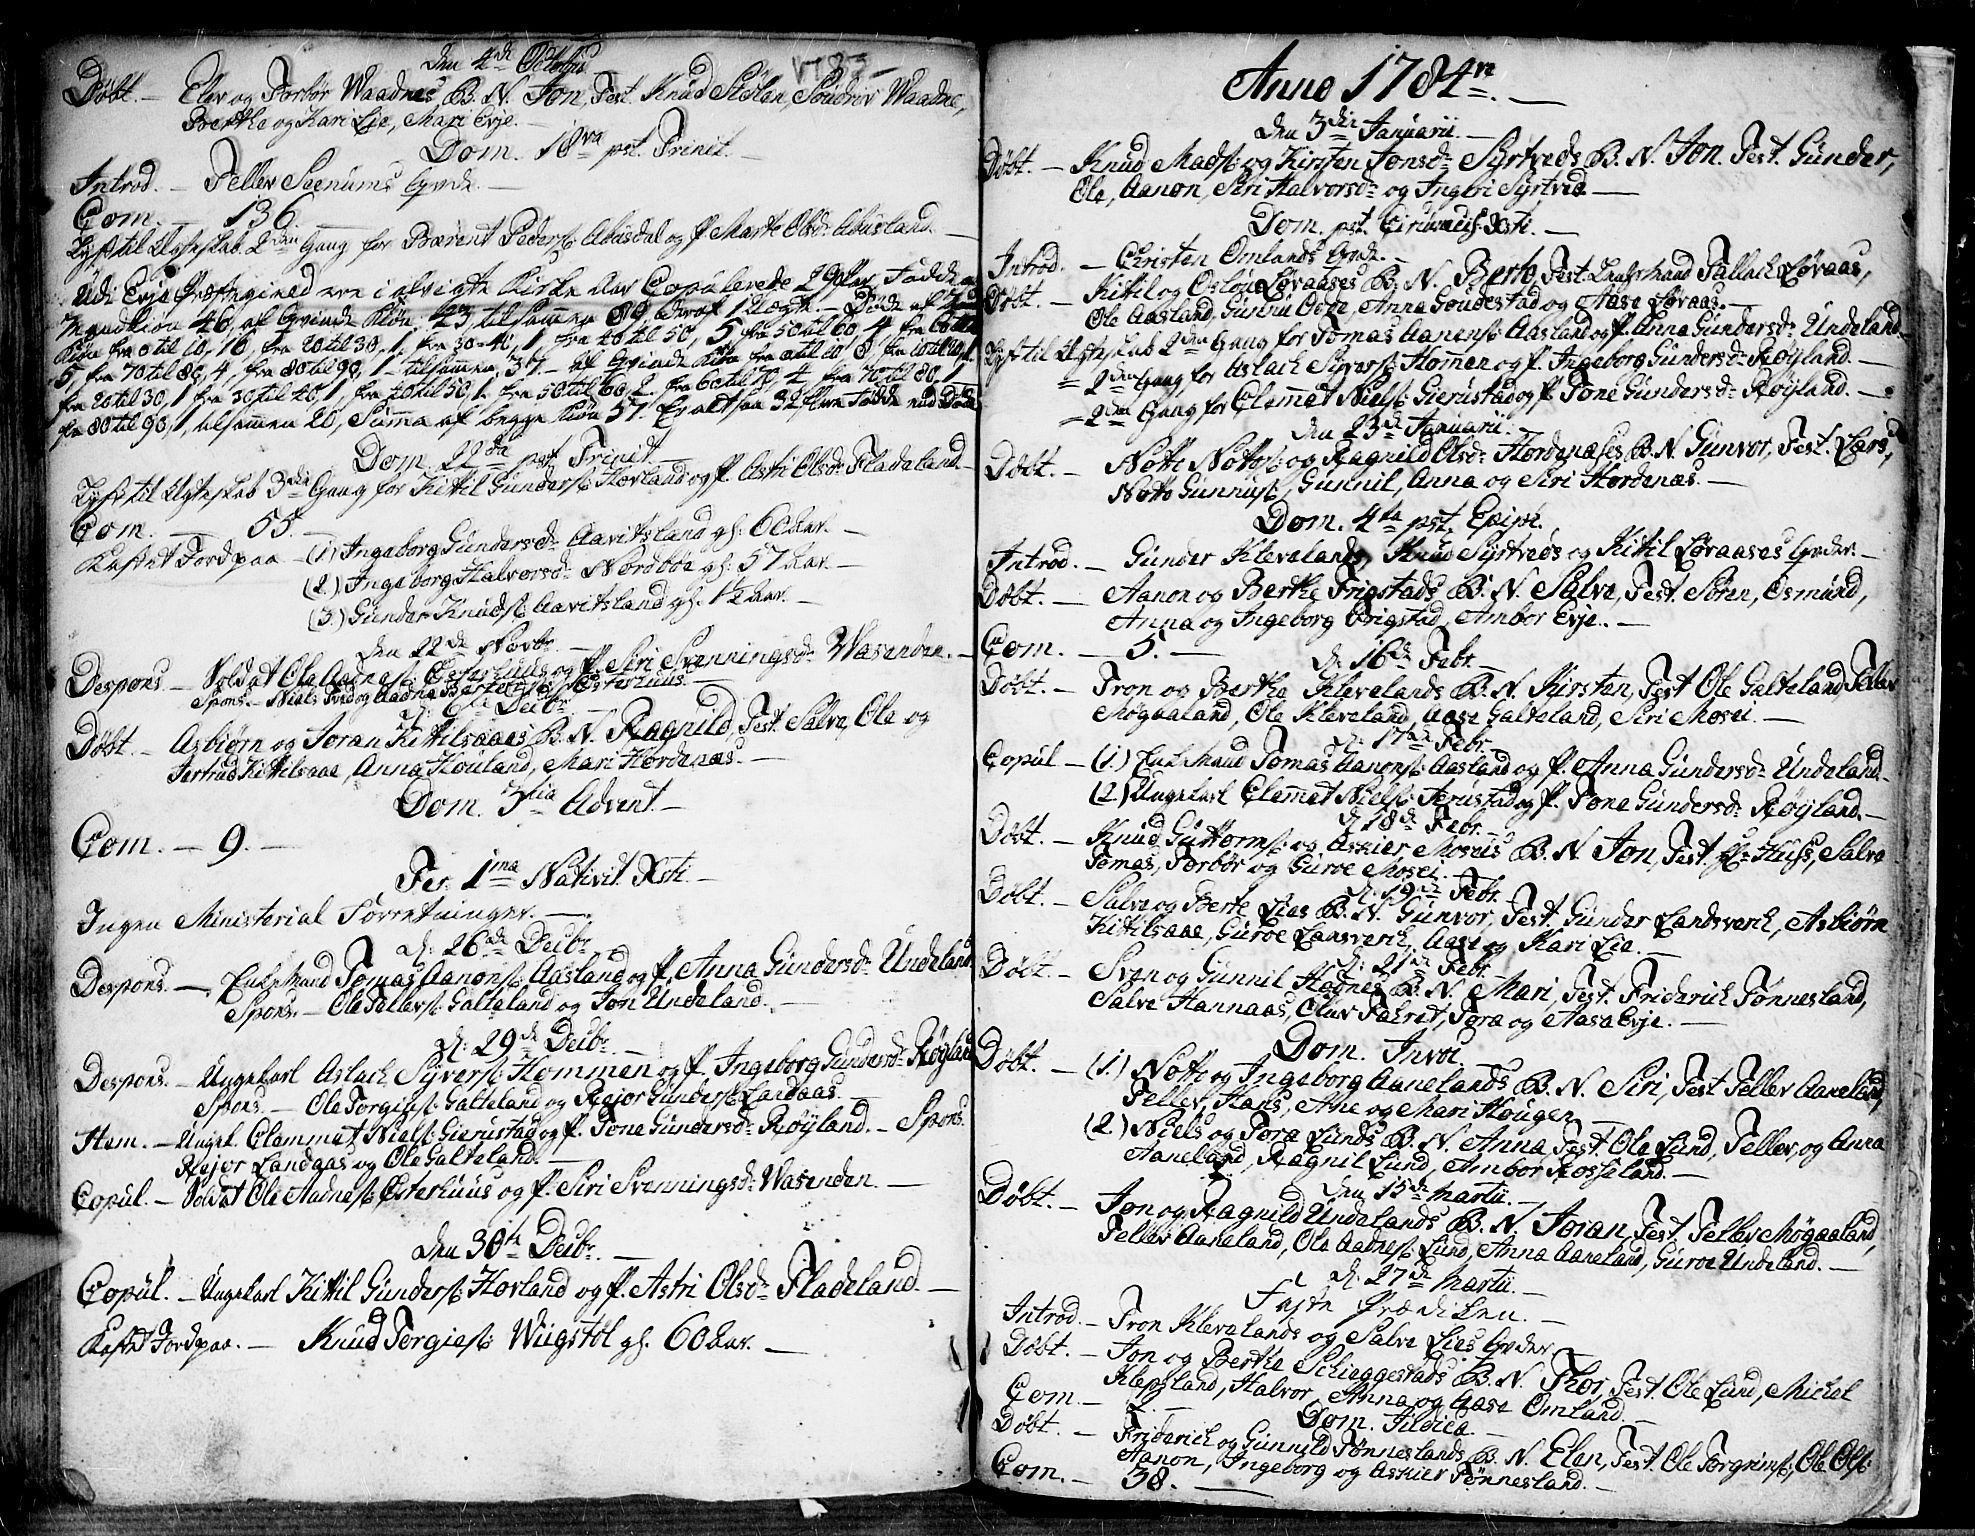 1783
Den 4de Octobris
Døbt. — Elev og Torbør Waadnes B. N. Jon, Test. Knud Stølen, Waadne,
Berthe og Kari Lie, Mari Evje. —
Dom. 18va pst. Trinit. —
Introd. — Tellev Senums Qvde. —
Com. — 136
Lyst til Ægteskab 2den Gang for Bærent Peders: Abusdal og P. Marte Olsd: Abusland. —
Udi Evje Præstegield ere i alvigte Kirke Aar Copulerede 29 Par, Fødde af
Mandkiøn 46, af Qvinde Kiøn, 43, tilsammen 89, Deraf 1 Uægte — Døde af
Kiøn fra 0 til 10, 16, fra 20 til 30, 1, fra 30-40, 1, fra 40 til 50, 5, fra 50 til 60, 4, fra 60 til
5, fra 70 til 80, 4, fra 80 til 90, 1 — tilsammen 37. — af Qvinde Kiøn fra 0 til 10, 8, fra 10 til 20, 1
fra 20 til 30, 1, fra 30 til 40, 1, fra 40 til 50, 1, fra 50 til 60, 2, fra 60 til 70, 4, fra 70 til 80, 1
fra 80 til 90, 1, tilsammen 20, Summa af begge Kiøn 57. Er altsaa 32 flere Fødde end Døde
Dom. 22da pst Trinit. —
Lyst til Ægteskab 3die Gang for Kittil Gunders: Hovland og P. Astri Olsd: Fladeland. —
Com. — 55. —
Kastet Jord paa — (1.) Ingeborg Gundersd: Aavitsland gl. 60 Aar. —
(2.) Ingeborg Halvorsd: Nordbøe gl. 57 Aar. —
(3.) Gunder Knuds: Aavitsland gl. 1½ Aar. —
Den 22de Novbr. —
Despons. — Soldat Ole Aadnes: Østerhuus og P. Siri Svenningsd: Wasenden. —
Spons. — Niels og Aadne Østerhuus. —
d. 6te Decbr. —
Døbt. — Asbiørn og Joran Kittilsaaes B. N. Ragnild, Test. Salve, Ole og
Jertrud Kittilsaae, Anna Houland, Mari Hordenæs. —
Dom. 3tia Advent. —
Com. — 9. —
Fer. 1ma Nativit. Xsti. —
Ingen Ministerial Forretninger. —
d. 26de Decbr.
Despons. — Enkemand Tomas Aanons: Aasland og P. Anna Gundersd: Undeland.
Spons. — Ole Tellevs: Galteland og Jon Undeland. —
d. 29de Decbr. —
Despons. — Ungekarl Aslach Syvers: Hommen og P. Ingeborg Gundersd: Røyland
Spons. — Ole Torgies: Galteland og Reior Gunders: Landaas. —
Item. — Ungek. Clemmet Niels: Gierustad og P. Tone Gundersd: Røyland. — Spons.
Rejor Landaas og Ole Galteland. —
Copul. — Soldat Ole Aadnes: Østerhuus og P. Siri Svenningsd: Wasenden. —
Den 30te Decbr. —
Copul. — Ungekarl Kittil Gunders: Hovland og P. Astri Olsd: Fladeland. —
Kastet Jord paa. — Knud Torgies: Wiigstøl gl. 60 Aar. —
Anno 1784re. —
Den 3die Januarii. —
Døbt. — Knud Mads: og Kirsten Jonsd: Syrtveds B. N. Jon. Test. Gunder,
Ole, Aanon, Siri Halvorsd: og Ingbri Syrtved —
Dom. pst. Circumcis. Xsti. —
Introd. — Christen Omlands Qvde. —
Døbt. — Kittil og Osløue Løvaases B. N. Berte, Test. Tallach Løvaas,
Ole Aasland, Gunnu, Anna Goudestad og Aase Løvaas. —
Lyst til Ægteskab 2den Gang for Tomas Aanens: Aasland og P. Anna Gundersd: Undeland.
= 2den Gang, for Aslach Syvers: Hommen og P. Ingeborg Gundersd: Røyland. —
= 2den Gang for Clemmet Niels: Gierustad og P. Tone Gundersd: Røyland. —
Den 23de Januarii. —
Døbt. — Notte Nottos: og Ragnild Olsd: Hordenæses B. N. Gunvor, Test. Lars,
Notto Gunnus:, Gunnil, Anna og Siri Hordenæs. —
Dom. 4ta pst. Epiph.
Introd. — Gunder Klevelands, Knud Syrtveds og Kittil Løvaases Qvder. —
Døbt. — Aanon og Berthe Frigstads B. N. Salve, Test. Søren, Osmund,
Anna og Ingeborg Frigstad, Ambor Evje. —
Com. — 5. —
d. 16de Febr. —
Døbt. — Tron og Berthe Klevelands B. N. Kirsten, Test Ole Galteland, Tellev
Høgaaland, Ole Kleveland, Aase Galteland, Siri Mosei. —
d. 17de Febr. —
Copul — (1.) Enkemand Tomas Aanons: Aasland og P. Anna Gundersd: Undeland. —
(2.) Ungekarl Clemmet Niels: Jerustad og P. Tone Gundersd: Røyland. —
d. 18de Febr. —
Døbt. — Knud Guttorms: og Askier Moseis B. N. Jon, Test. Hr. Huss, Salve
Tomas, Torbør og Guroe Mosei. —
d. 19de Febr. —
Døbt. — Salve og Berte Lies B. N. Gunvor, Test. Gunder Landsverk, Asbiørn
Kittilsaae, Guroe Lansverk, Aase og Kari Lie. —
d. 21de Febr. —
Døbt. — Sven og Gunnil Hodnes B. N. Mari, Test. Friderich Tønnesland,
Salve Hannaas, Oluv Fahret, Tora og Aasa Evje. —
Dom. Invoc.
Døbt. — (1.) Notto og Ingeborg Aanelands B. N. Siri, Test Tellev Aaneland,
Tellev, Hans, Ane og Mari Hougen —
(2.) Niels og Tora Lunds B. N. Anna, Test. Ole Lund, Tellev, og Anna
Aaneland, Ragnil Lund, Ambor Rosseland. —
Den 15de Martii. —
Døbt. — Jon og Ragnild Undelands B. N. Joran, Test. Tellev Høgaaland,
Tellev Aaneland, Ole Aadnes: Lund, Anna Aaneland, Guroe Undeland. —
d. 27de Martii. —
Faste Prædiken. —
Introd. — Tron Klevelands og Salve Lies Qvder. —
Døbt. — Jon og Berthe Schieggestads B. N. Thor, Test. Ole Lund, Michel
Klepsland, Halvor, Anna og Aase Omland. —
Com. — 2. —
Dom. Judica. —
Døbt. — Friderich og Gunnild Tønneslands B. N. Elen, Test. Ole Torgrims:, Ole Ols:
Aanon, Ingeborg og Askier Tønnesland. —
Com. — 38. —